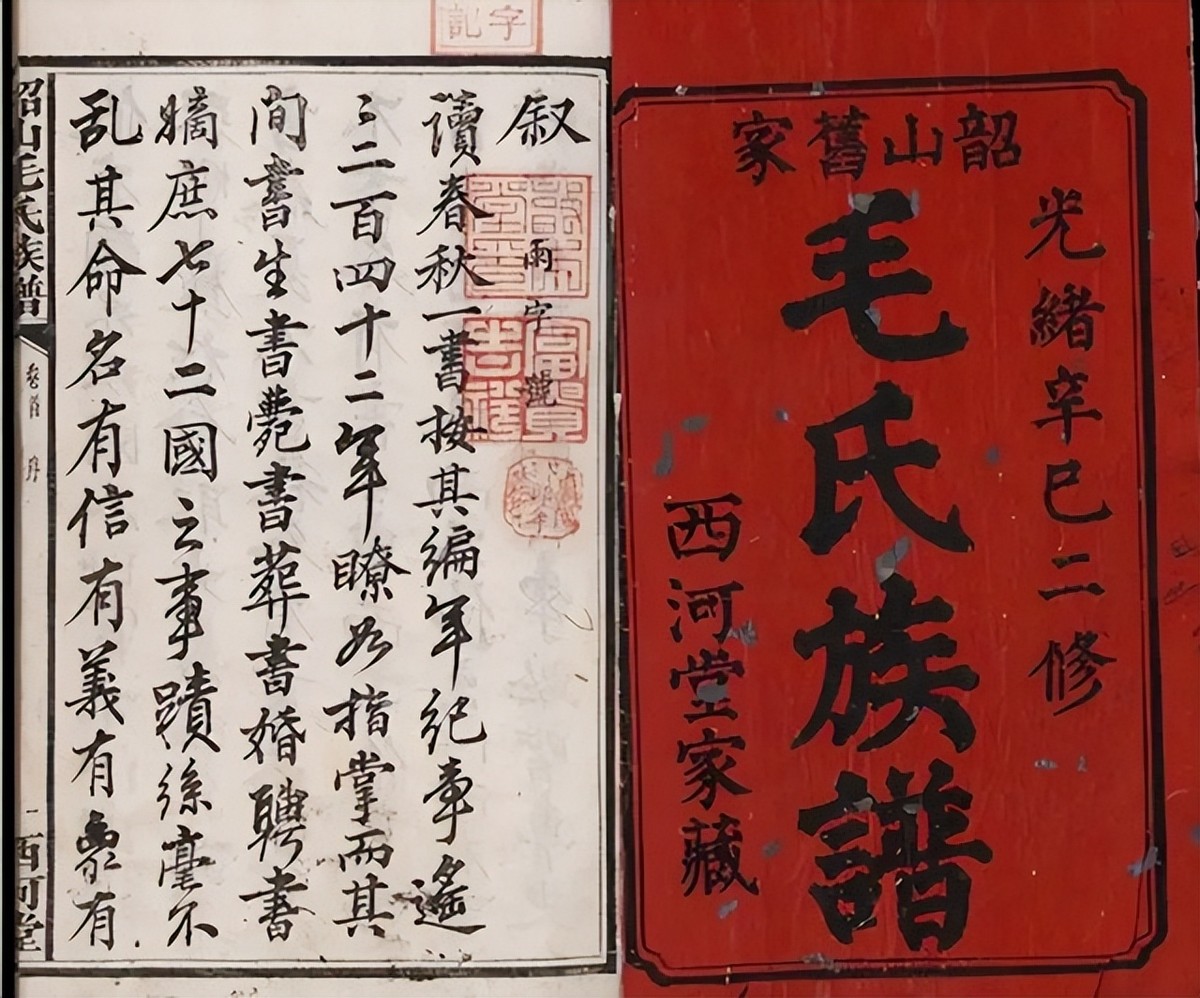 韶山舊家
光緒辛巳二修
毛氏族譜
西河堂家藏
字記
叙
雨字號
富貴吉祥
讀春秋一書按其編年紀事遙
〻二百四十二年瞭如指掌而其
間書生書薨書葬書婚聘書
嫡庶七十二國之事蹟絲毫不
乱其命名有信有義有象有
韶山毛氏族譜
卷首
序
一
西河堂